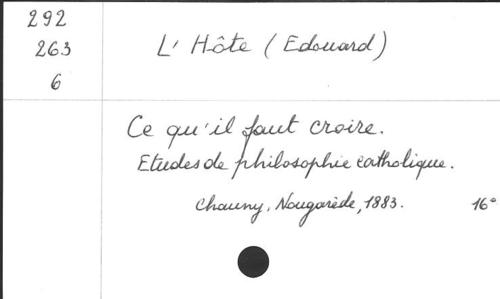 292
263
6
L'Hôte (Edouard)
Ce qu'il faut croire.
Etudes de philosophie catholique.
Chauny, Nougarède, 1883. 16°